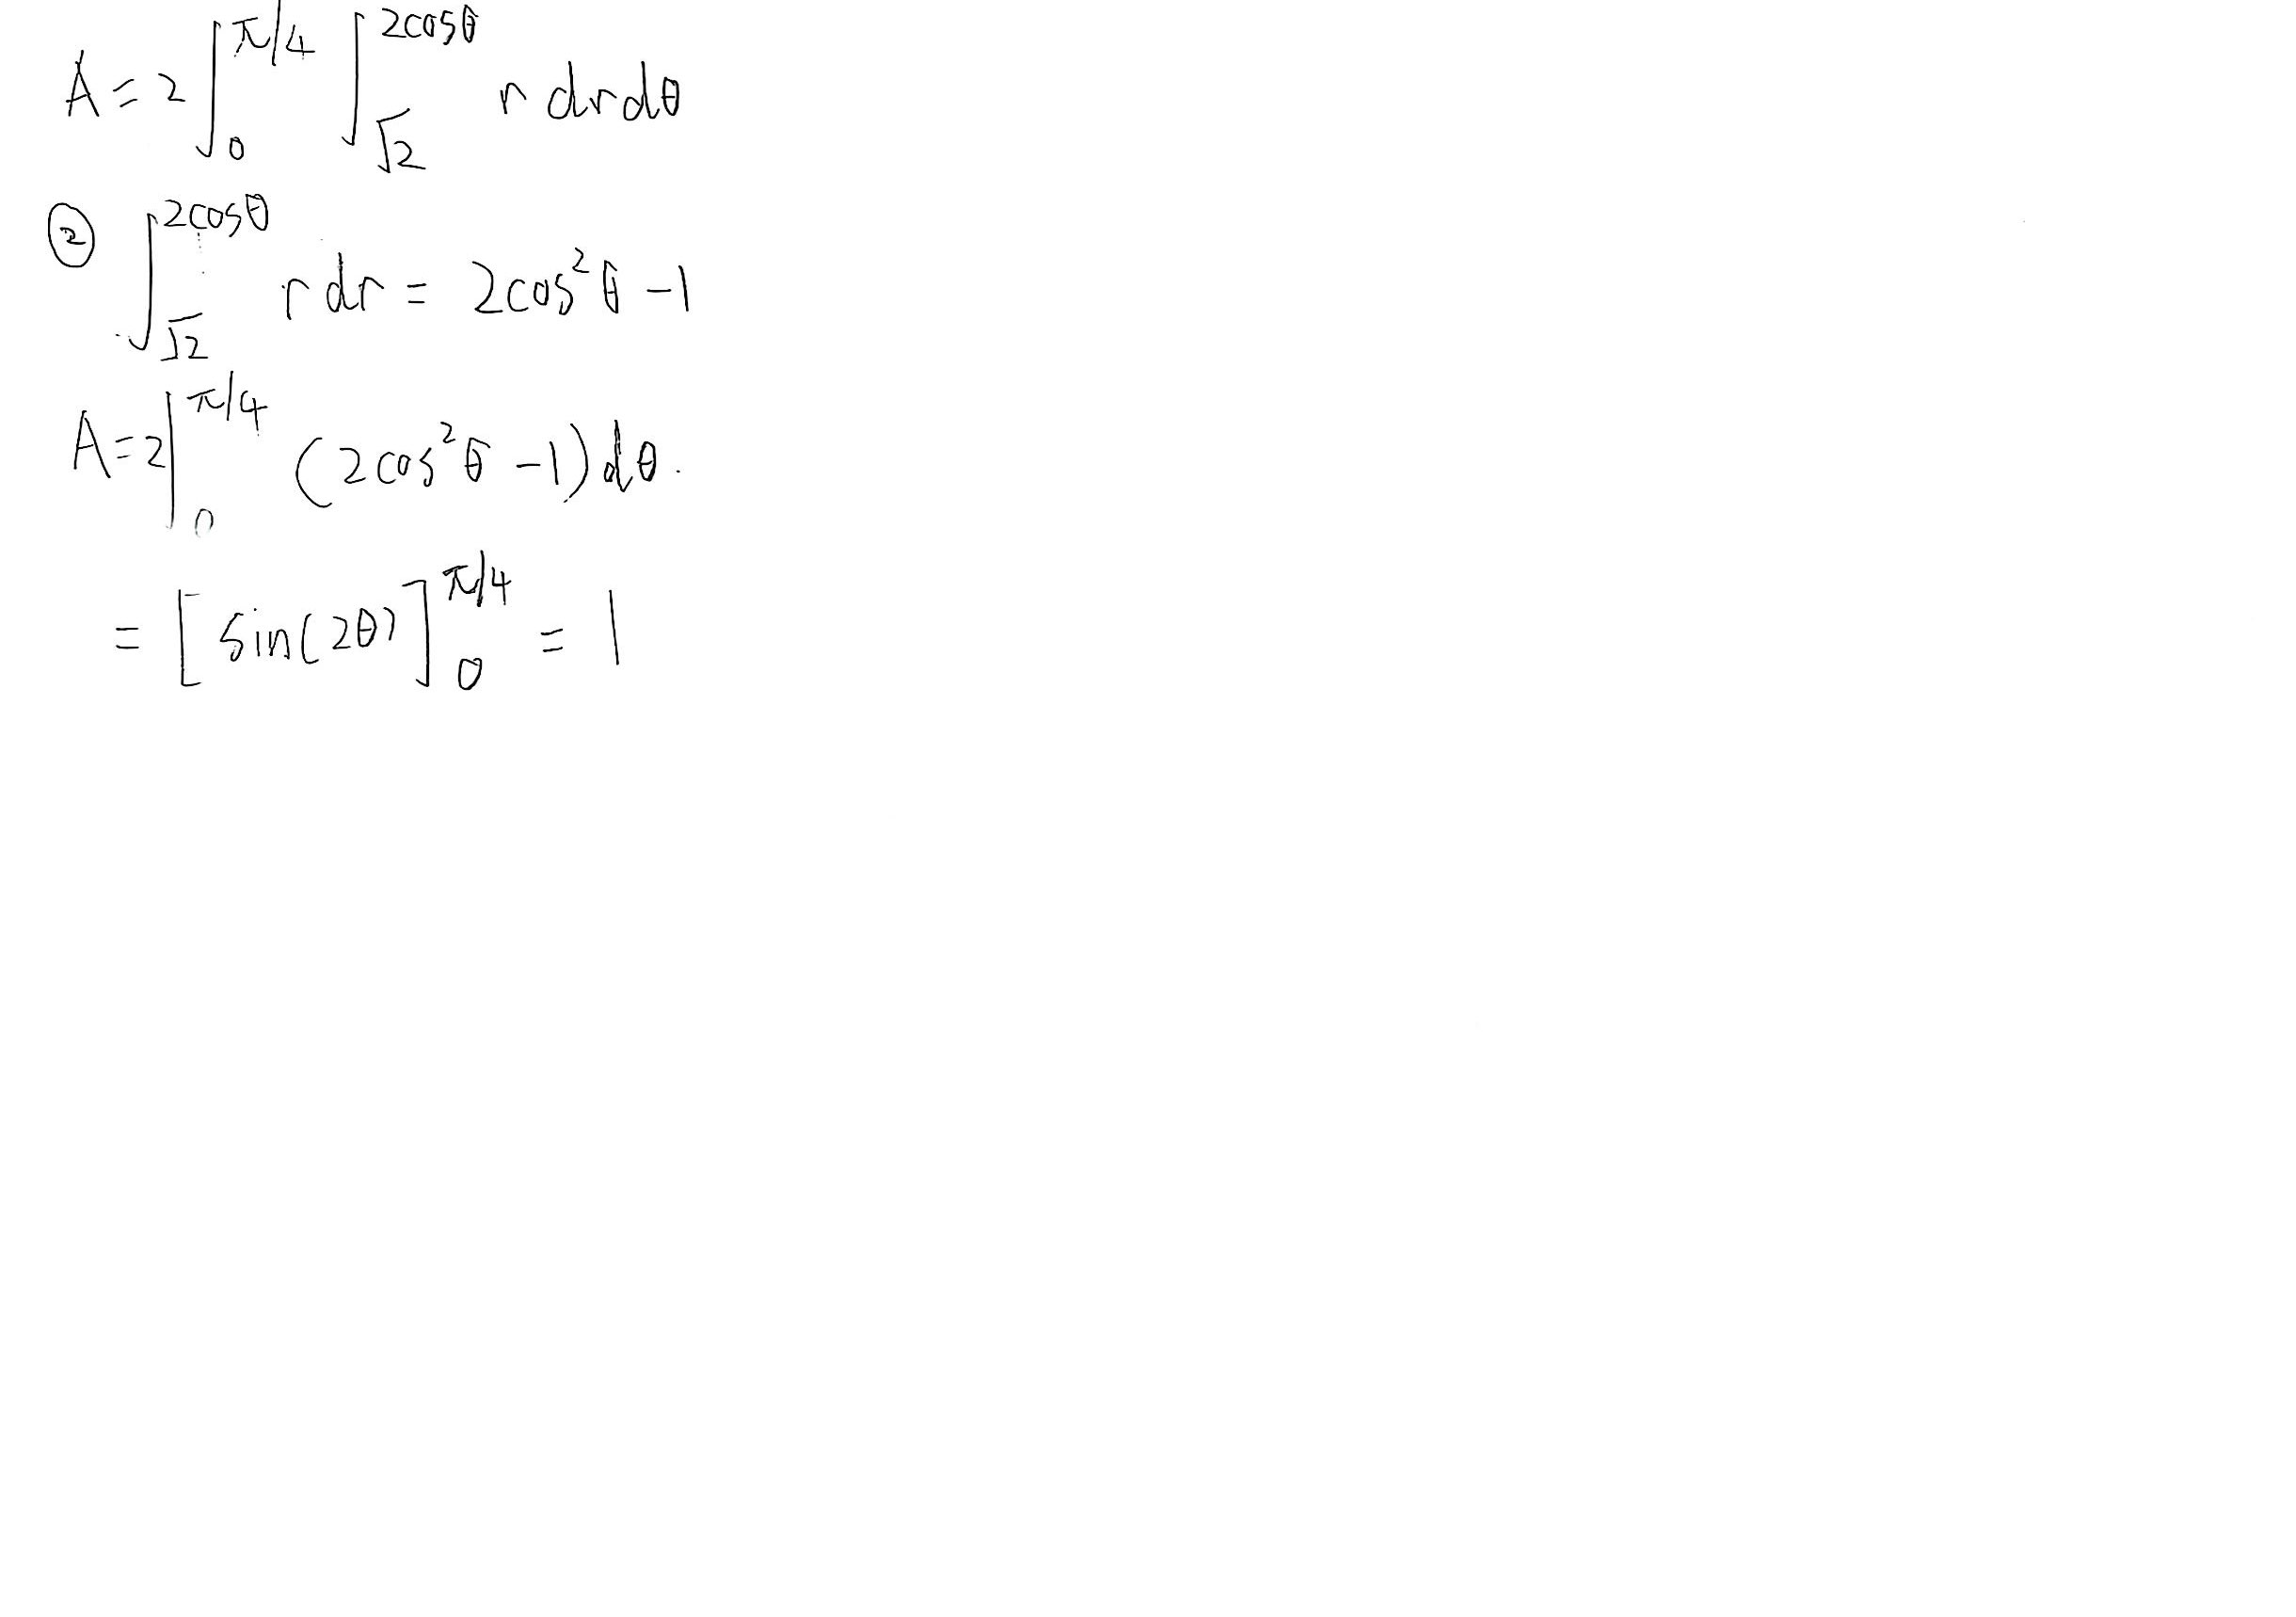 A = 2 ∫₀^{π/4} ∫_{√2}^{2cosθ} r dr dθ
② ∫_{√2}^{2cosθ} r dr = 2cos²θ − 1
A = 2 ∫₀^{π/4} (2cos²θ − 1) dθ.
= [sin(2θ)]₀^{π/4} = 1